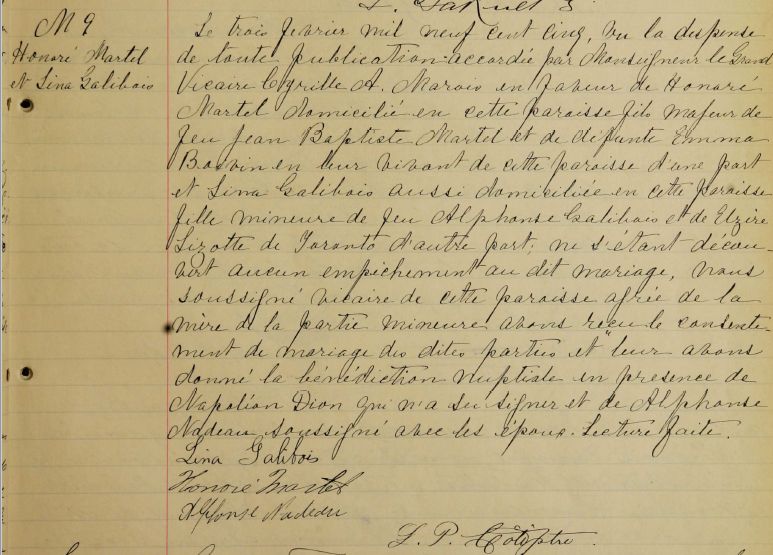 M 9
Honoré Martel
et Lina Galibois
Le trois février mil neuf cent cinq, vu la dispense
de toute publication accordée par Monseigneur le Grand
Vicaire Cyrille A. Marois en faveur de Honoré
Martel domicilié en cette paroisse fils majeur de
feu Jean Baptiste Martel et de défunte Emma
Boivin en leur vivant de cette paroisse d'une part
et Lina Galibois aussi domiciliée en cette paroisse
fille mineure de feu Alphonse Galibois et de Elzire
Lizotte de Toronto d'autre part; ne s'étant décou-
vert aucun empêchement au dit mariage, nous
soussigné vicaire de cette paroisse agréé de la
mère de la partie mineure avons reçu le consente-
ment de mariage des dites parties et leur avons
donné la bénédiction nuptiale en présence de
Napoléon Dion qui n'a su signer et de Alphonse
Nadeau soussigné avec les époux. Lecture faite.
Lina Galibois
Honoré Martel
Alfonse Nadeau
L. P.